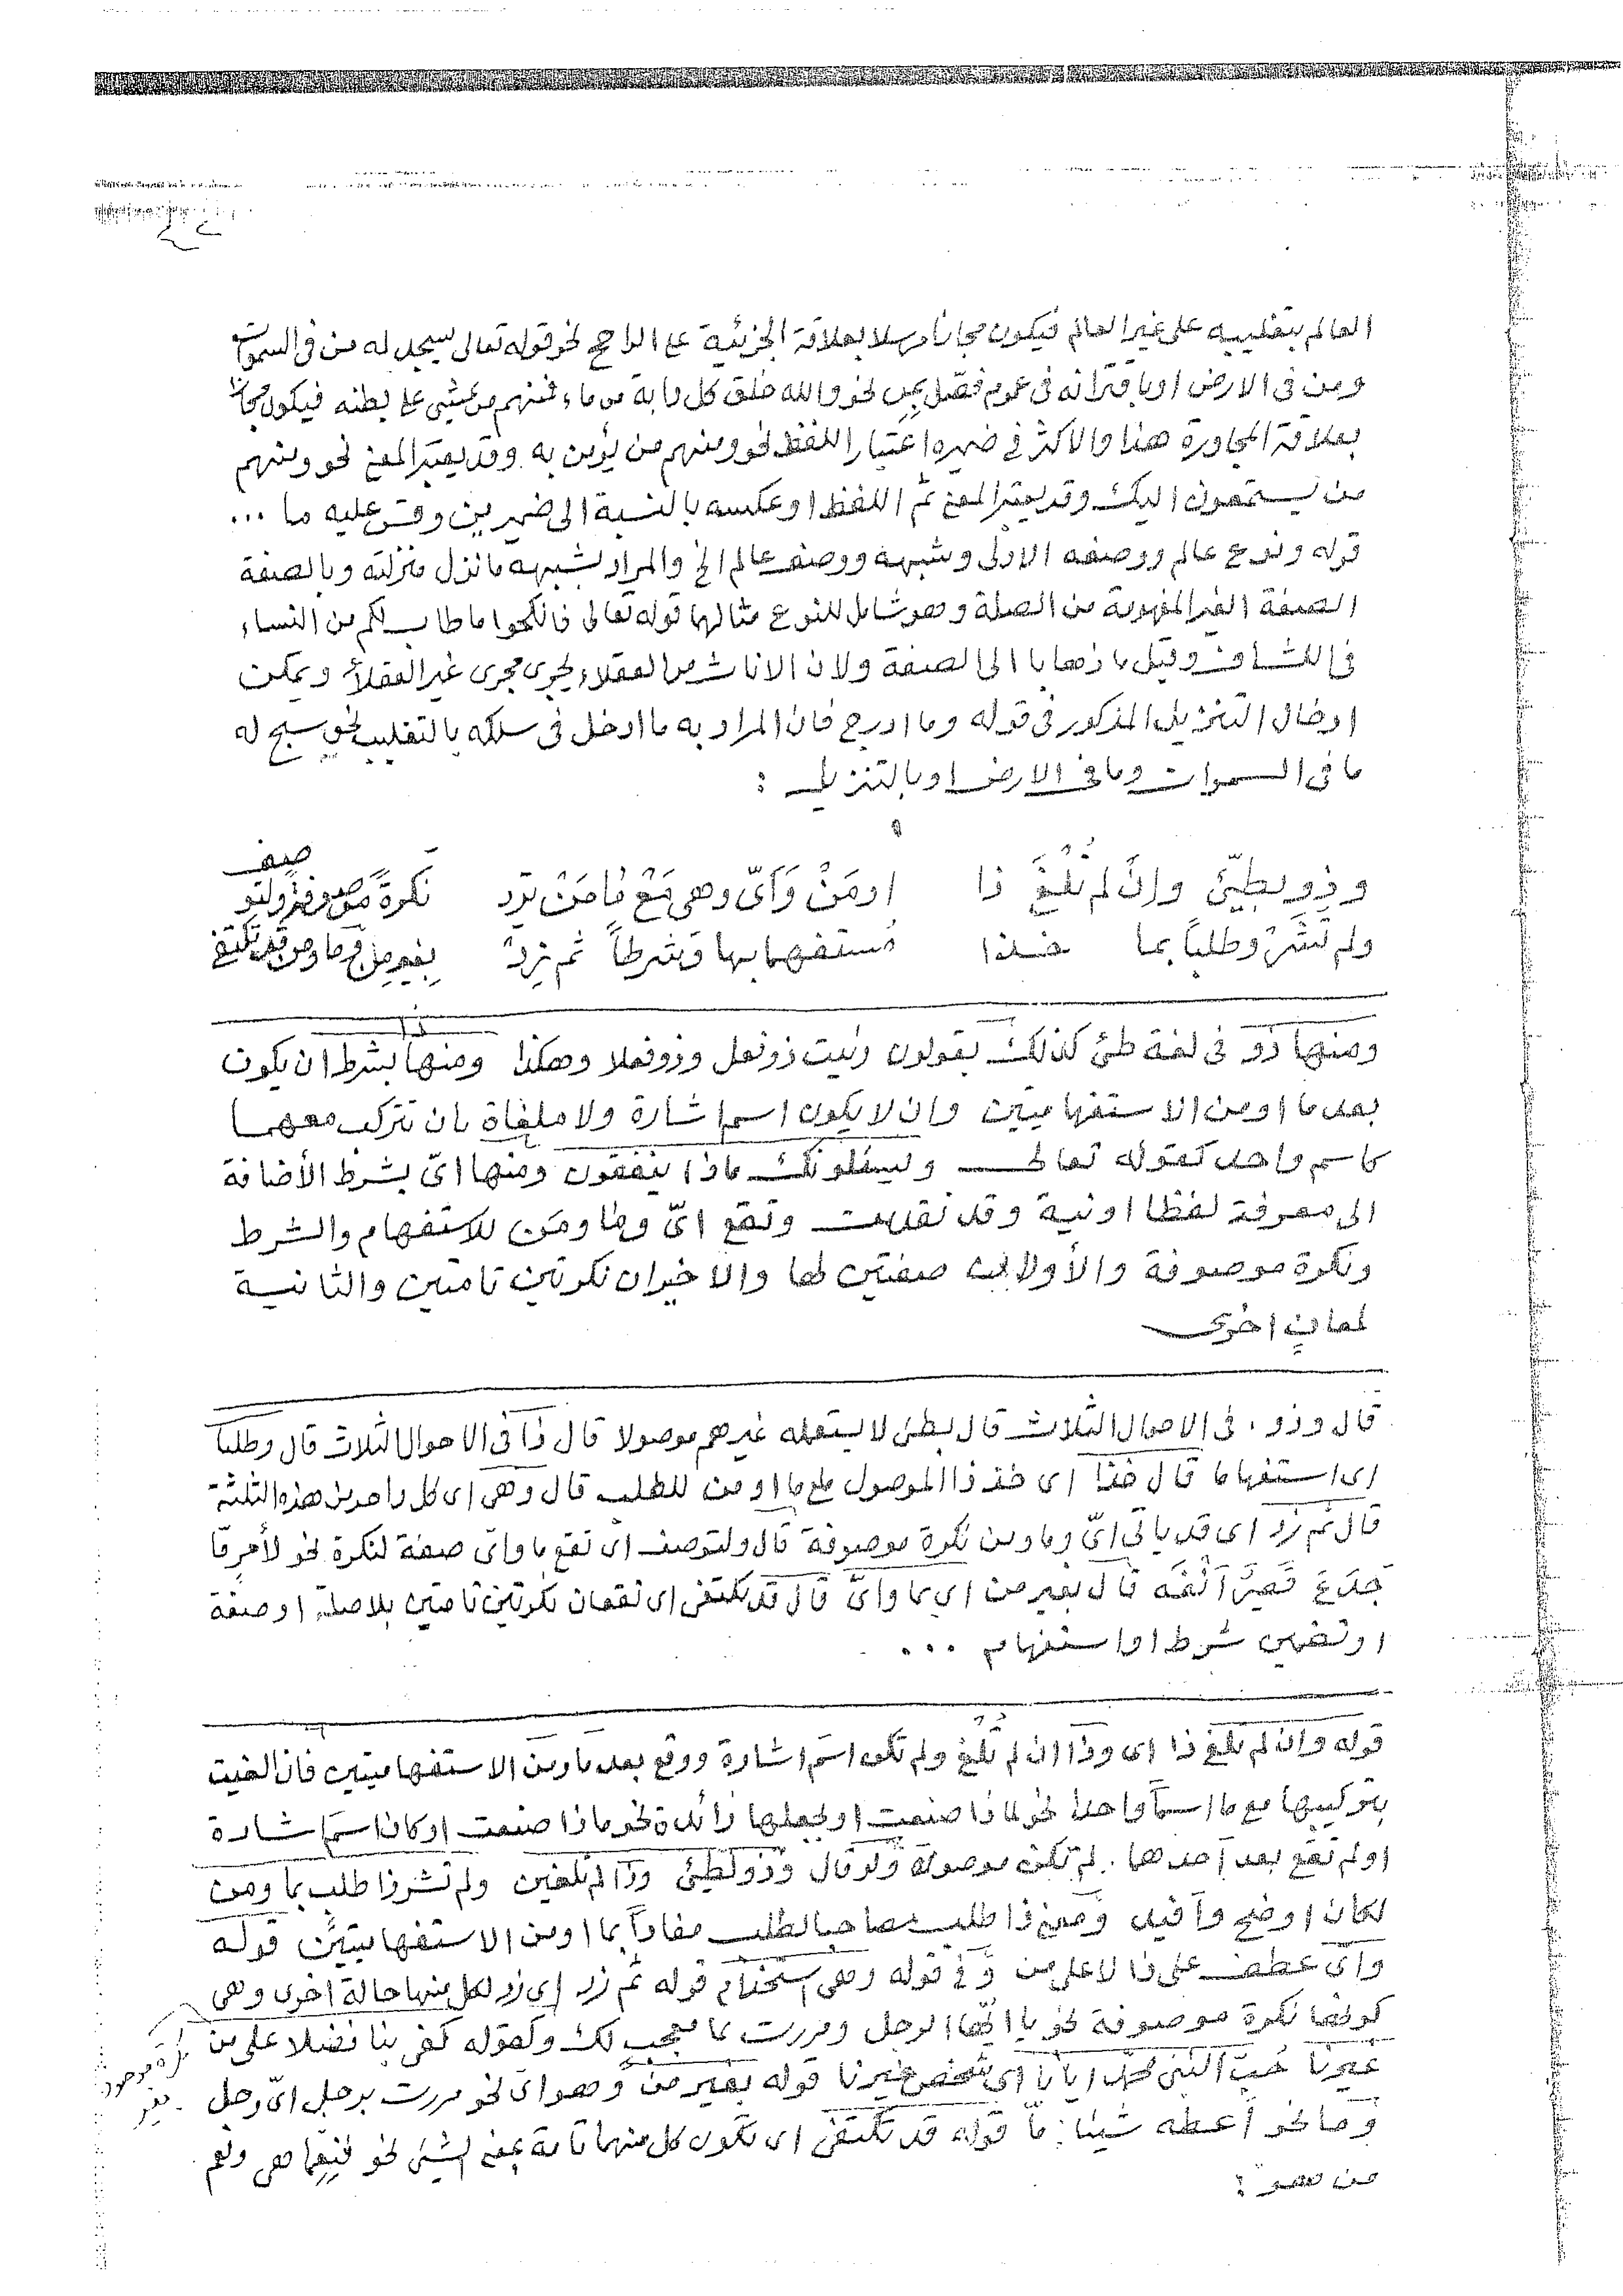 العالم بتغليبه على غير العالم فيكون مجازا مرسلا بعلاقة الجزئية على الراجح نحو قوله تعالى يسجد له من فى السموات
ومن فى الارض او باقترانه فى عموم فصل بمن نحو والله خلق كل دابة من ماء فمنهم من يمشى على بطنه فيكون مجازا
بعلاقة المجاورة هذا والاكثر فى ضميره اعتبار اللفظ نحو ومنهم من يؤمن به وقد يعتبر المعنى نحو ومنهم
من يستمعون اليك وقد يعتبر المعنى ثم اللفظ او عكسه بالنسبة الى ضميرين وقس عليه ما ...
قوله ونوع عالم ووصفه الاولى وشبهه ووصف عالم الخ والمراد بشبهه ما نزل منزلته وبالصفة
الصفة الغير المفهومة من الصلة وهو شامل للنوع مثالها قوله تعالى فانكحوا ما طاب لكم من النساء
فى الكشاف وقيل ما ذهابا الى الصفة ولان الاناث من العقلاء يجرى مجرى غير العقلاء ويمكن
ادخال التنزيل المذكور فى قوله وما ادرج فان المراد به ما ادخل فى سلكه بالتغليب نحو سبح له
ما فى السموات وما فى الارض او بالتنزيل :
وذو بطيّئ وإنْ لم تُلْغَ ذا اومَنْ وَأىّ وهى مَعْ مَا مَنْ تَرِد نكرةً موصوفةً ولتوصف
ولم تُشَرْ وطلباً بما خذا مُستفهما بها وشرطاً ثم زِدْ بغير من وما ومن قد تكتفى
ومنها ذو فى لغة طئ كذلك يقولون رئيت ذو فعل وذو فعلا وهكذا ومنها ذا بشرط ان يكون
بعد ما او من الاستفهاميتين وان لا يكون اسم اشارة ولا ملغاة بان تتركب معهما
كاسم واحد كقوله تعالى ويسئلونك ماذا ينفقون ومنها اىّ بشرط الأضافة
الى معرفة لفظا او نية وقد تقدمت وتقع اىّ وما ومَن للاستفهام والشرط
ونكرة موصوفة والأوليان صفتين لها والاخيران نكرتين تامتين والثانية
لمعانٍ اخرى
قال وذو ، فى الاحوال الثلاث قال بطئ لا يستعمله غيرهم موصولا قال ذا فى الاحوال الثلاث قال وطلبا
اى استفهاما قال خذا اى خذ ذا الموصول مع ما او من للطلب قال وهى اى كل واحد من هذه الثلثة
قال ثم زد اى قد ياتى اىّ وما ومن نكرة موصوفة قال ولتوصف اى تقع ما واىّ صفة لنكرة نحو لأمرٍمّا
جَدَعَ قَصِيرٌ اَنْفَه قال بغير من اى بما واىّ قال قد تكتفى اى تقعان نكرتين تامتين بلا صلة او صفة
او تضمين شرط او استفهام ...
قوله وان لم تلغ ذا اى وذا ان لم تُلْغَ ولم تكن اسم اشارة ووقع بعد ما ومن الاستفهاميتين فان الغيت
بتركيبها مع ما اسماً واحدا نحو لماذا صنعت او بجعلها زائدة نحو ماذا صنعت او كان اسم اشارة
او لم تقع بعد احدهما . لم تكن موصولة ولو قال وذو لطيئ وذا لم تلغين ولم تشر ذا طلب بما ومن
لكان اوضح وافيد ومعنى ذا طلب مصاحبا لطلب مفاداً بما او من الاستفهاميتين قوله
واىّ عطف على ذا لا على من وفى قوله وهى استخدام قوله ثم زد اى زد لكل منها حالة اخرى وهى
كونها نكرة موصوفة نحو يا ايّها الرجل ومررت بما معجب لك وكقوله كفى بنا فضلا على من
غيرنا حُبّ النبى محمد ايانا اى شخص غيرنا قوله بغير من وهو اى نحو مررت برجل اىّ رجل
وما نحو أعطه شيئا مّا قوله قد تكتفى اى تكون كل منهما تامة بمعنى الشئ نحو فنِعِمّا هى ونعم
من هو :